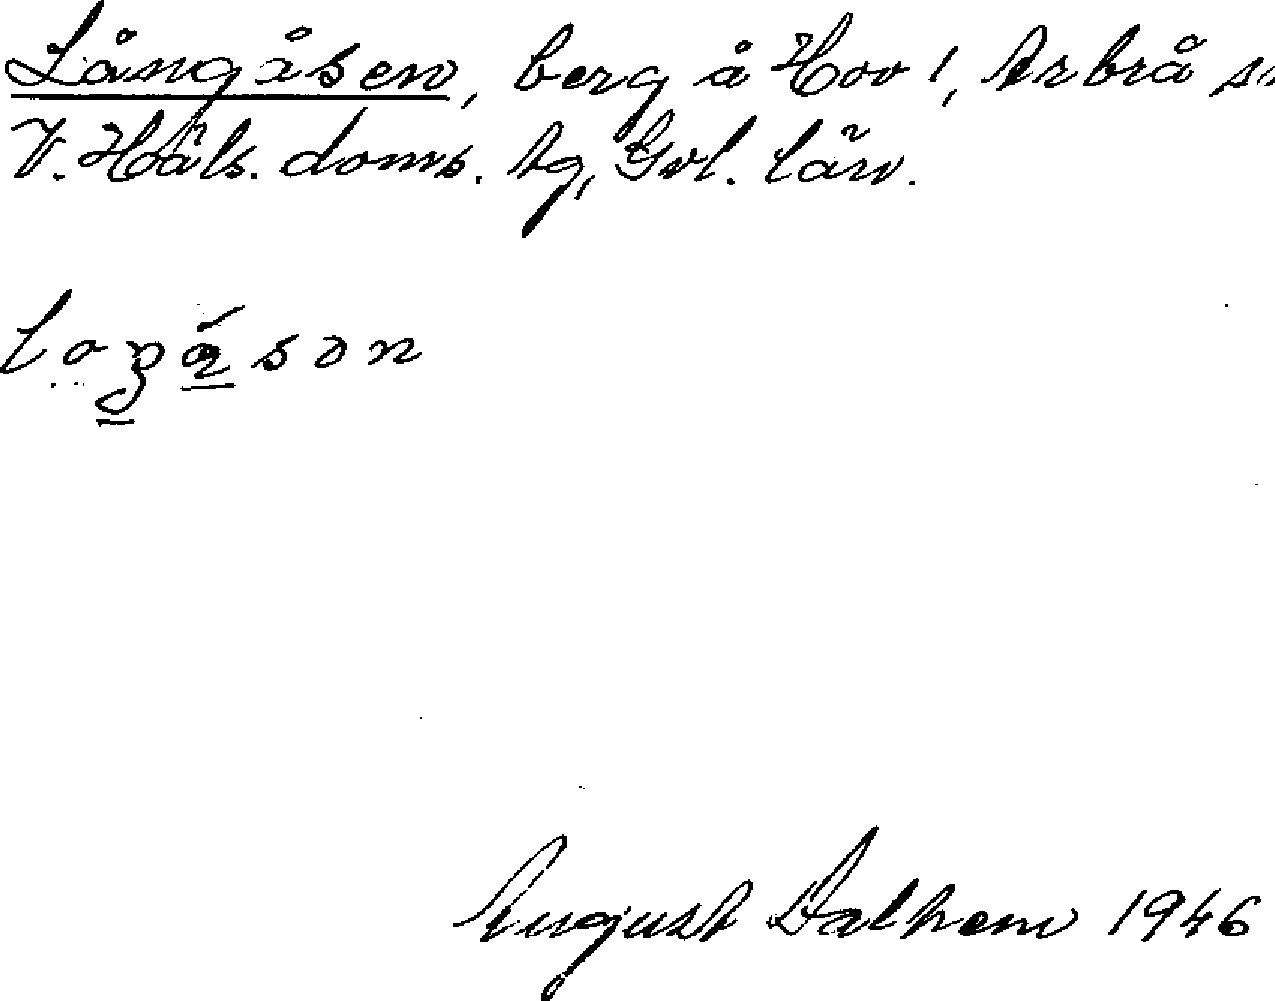 Långåsen, berg å Hov 1, Arbrå s
V. Häls. doms. tg, Gvl. län.
August Dalhem 1946